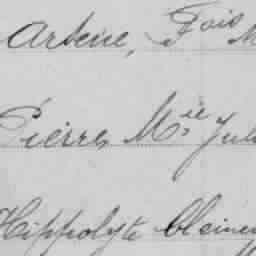 Arsène, Fois M
Pierre, M.ie Jul
Hippolyte Clemen